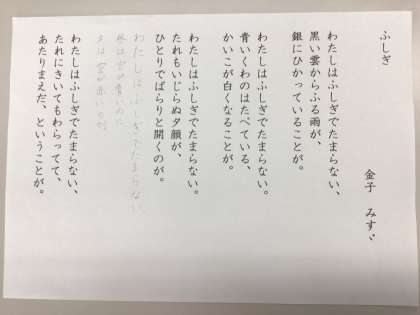 ふしぎ
金子 みすゞ
わたしはふしぎでたまらない、
黒い雲からふる雨が、
銀にひかっていることが。
わたしはふしぎでたまらない、
青いくわのはたべている、
かいこが白くなることが。
わたしはふしぎでたまらない。
たれもいじらぬ夕顔が、
ひとりでぱらりと開くのが。
わたしはふしぎでたまらない
昼は空が青いのに
夕は空が赤いのが
わたしはふしぎでたまらない、
たれにきいてもわらってて、
あたりまえだ、ということが。